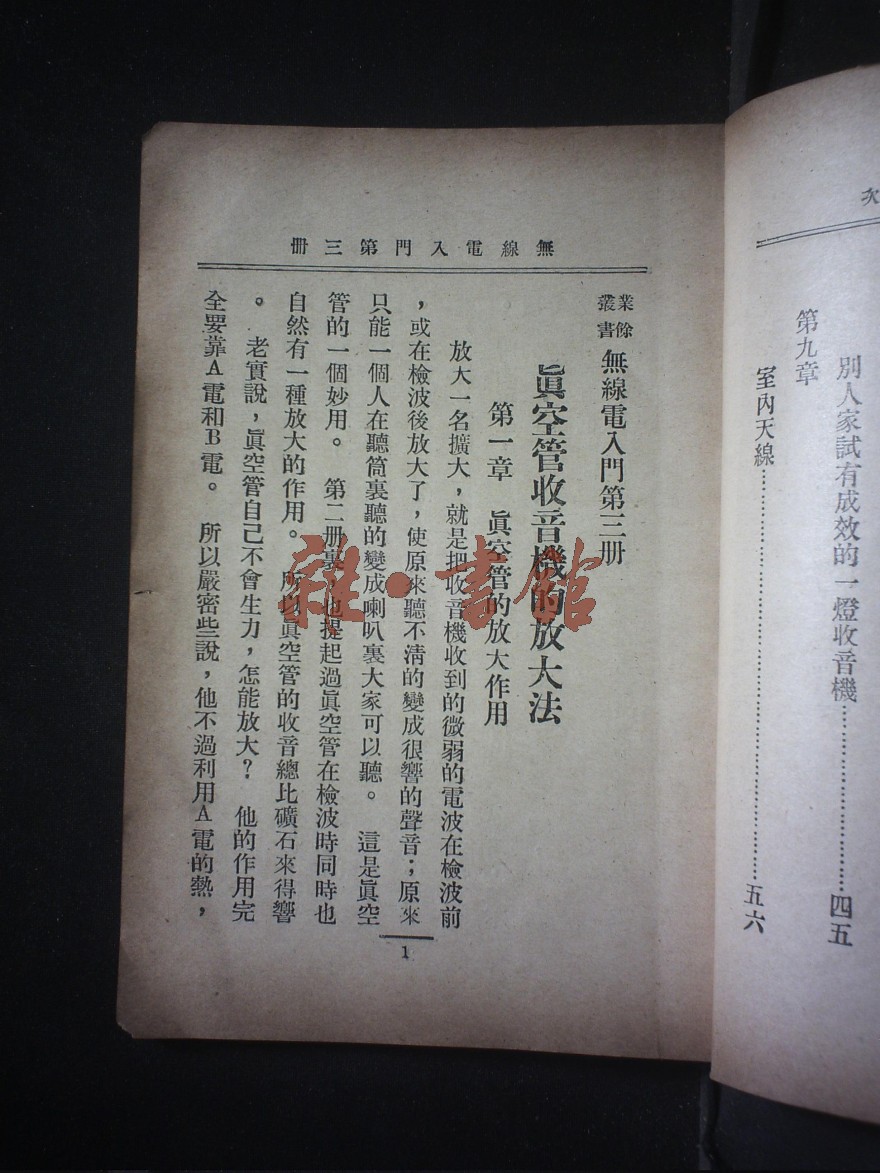 次
別人家試有成效的一燈收音機……………………四五
第九章
室內天線……………………………………五六
無線電入門第三冊
業餘叢書 無線電入門第三册
眞空管收音機的放大法
第一章　眞空管的放大作用
放大一名擴大，就是把收音機收到的微弱的電波在檢波前
，或在檢波後放大了，使原來聽不清的變成很響的聲音；原來
只能一個人在聽筒裏聽的變成喇叭裏大家可以聽。　這是眞空
管的一個妙用。　第二册裏，也提起過眞空管在檢波時同時也
自然有一種放大的作用。　所以眞空管的收音總比礦石來得響
。　老實說，眞空管自己不會生力，怎能放大？　他的作用完
全要靠A電和B電。　所以嚴密些說，他不過利用A電的熱，
1
雜·書館